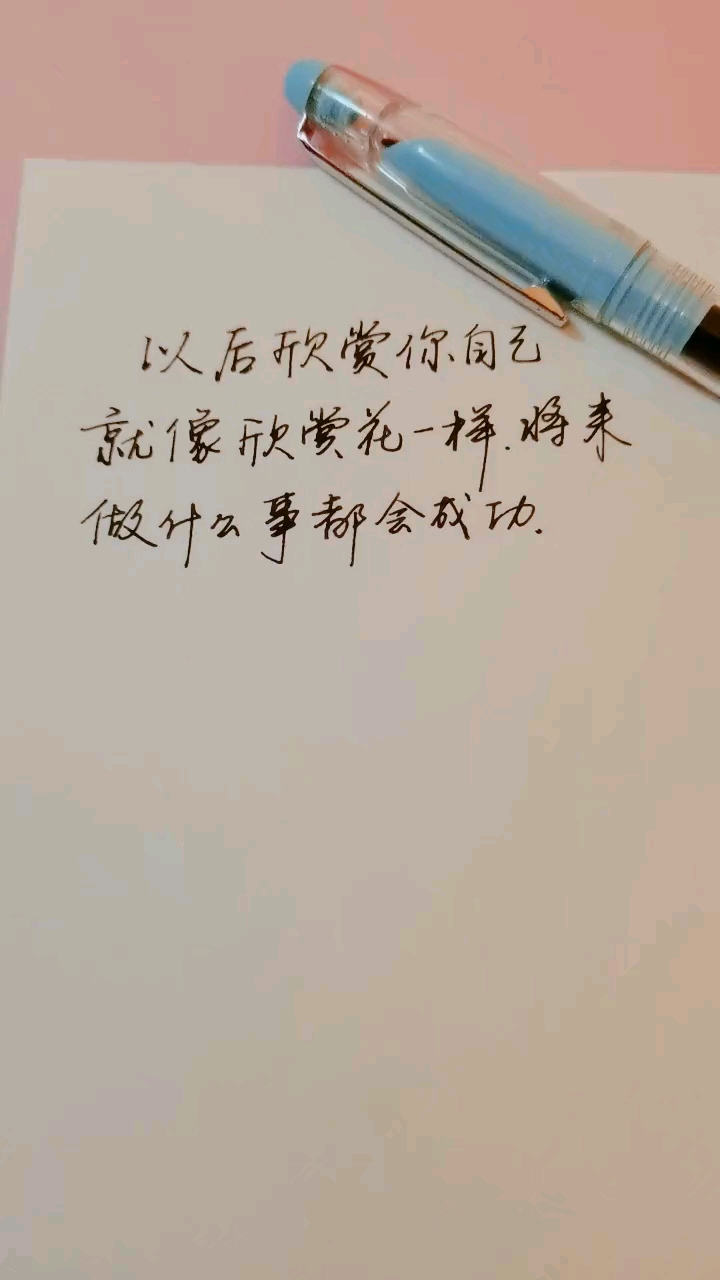 以后欣赏你自己
就像欣赏花一样.将来
做什么事都会成功.